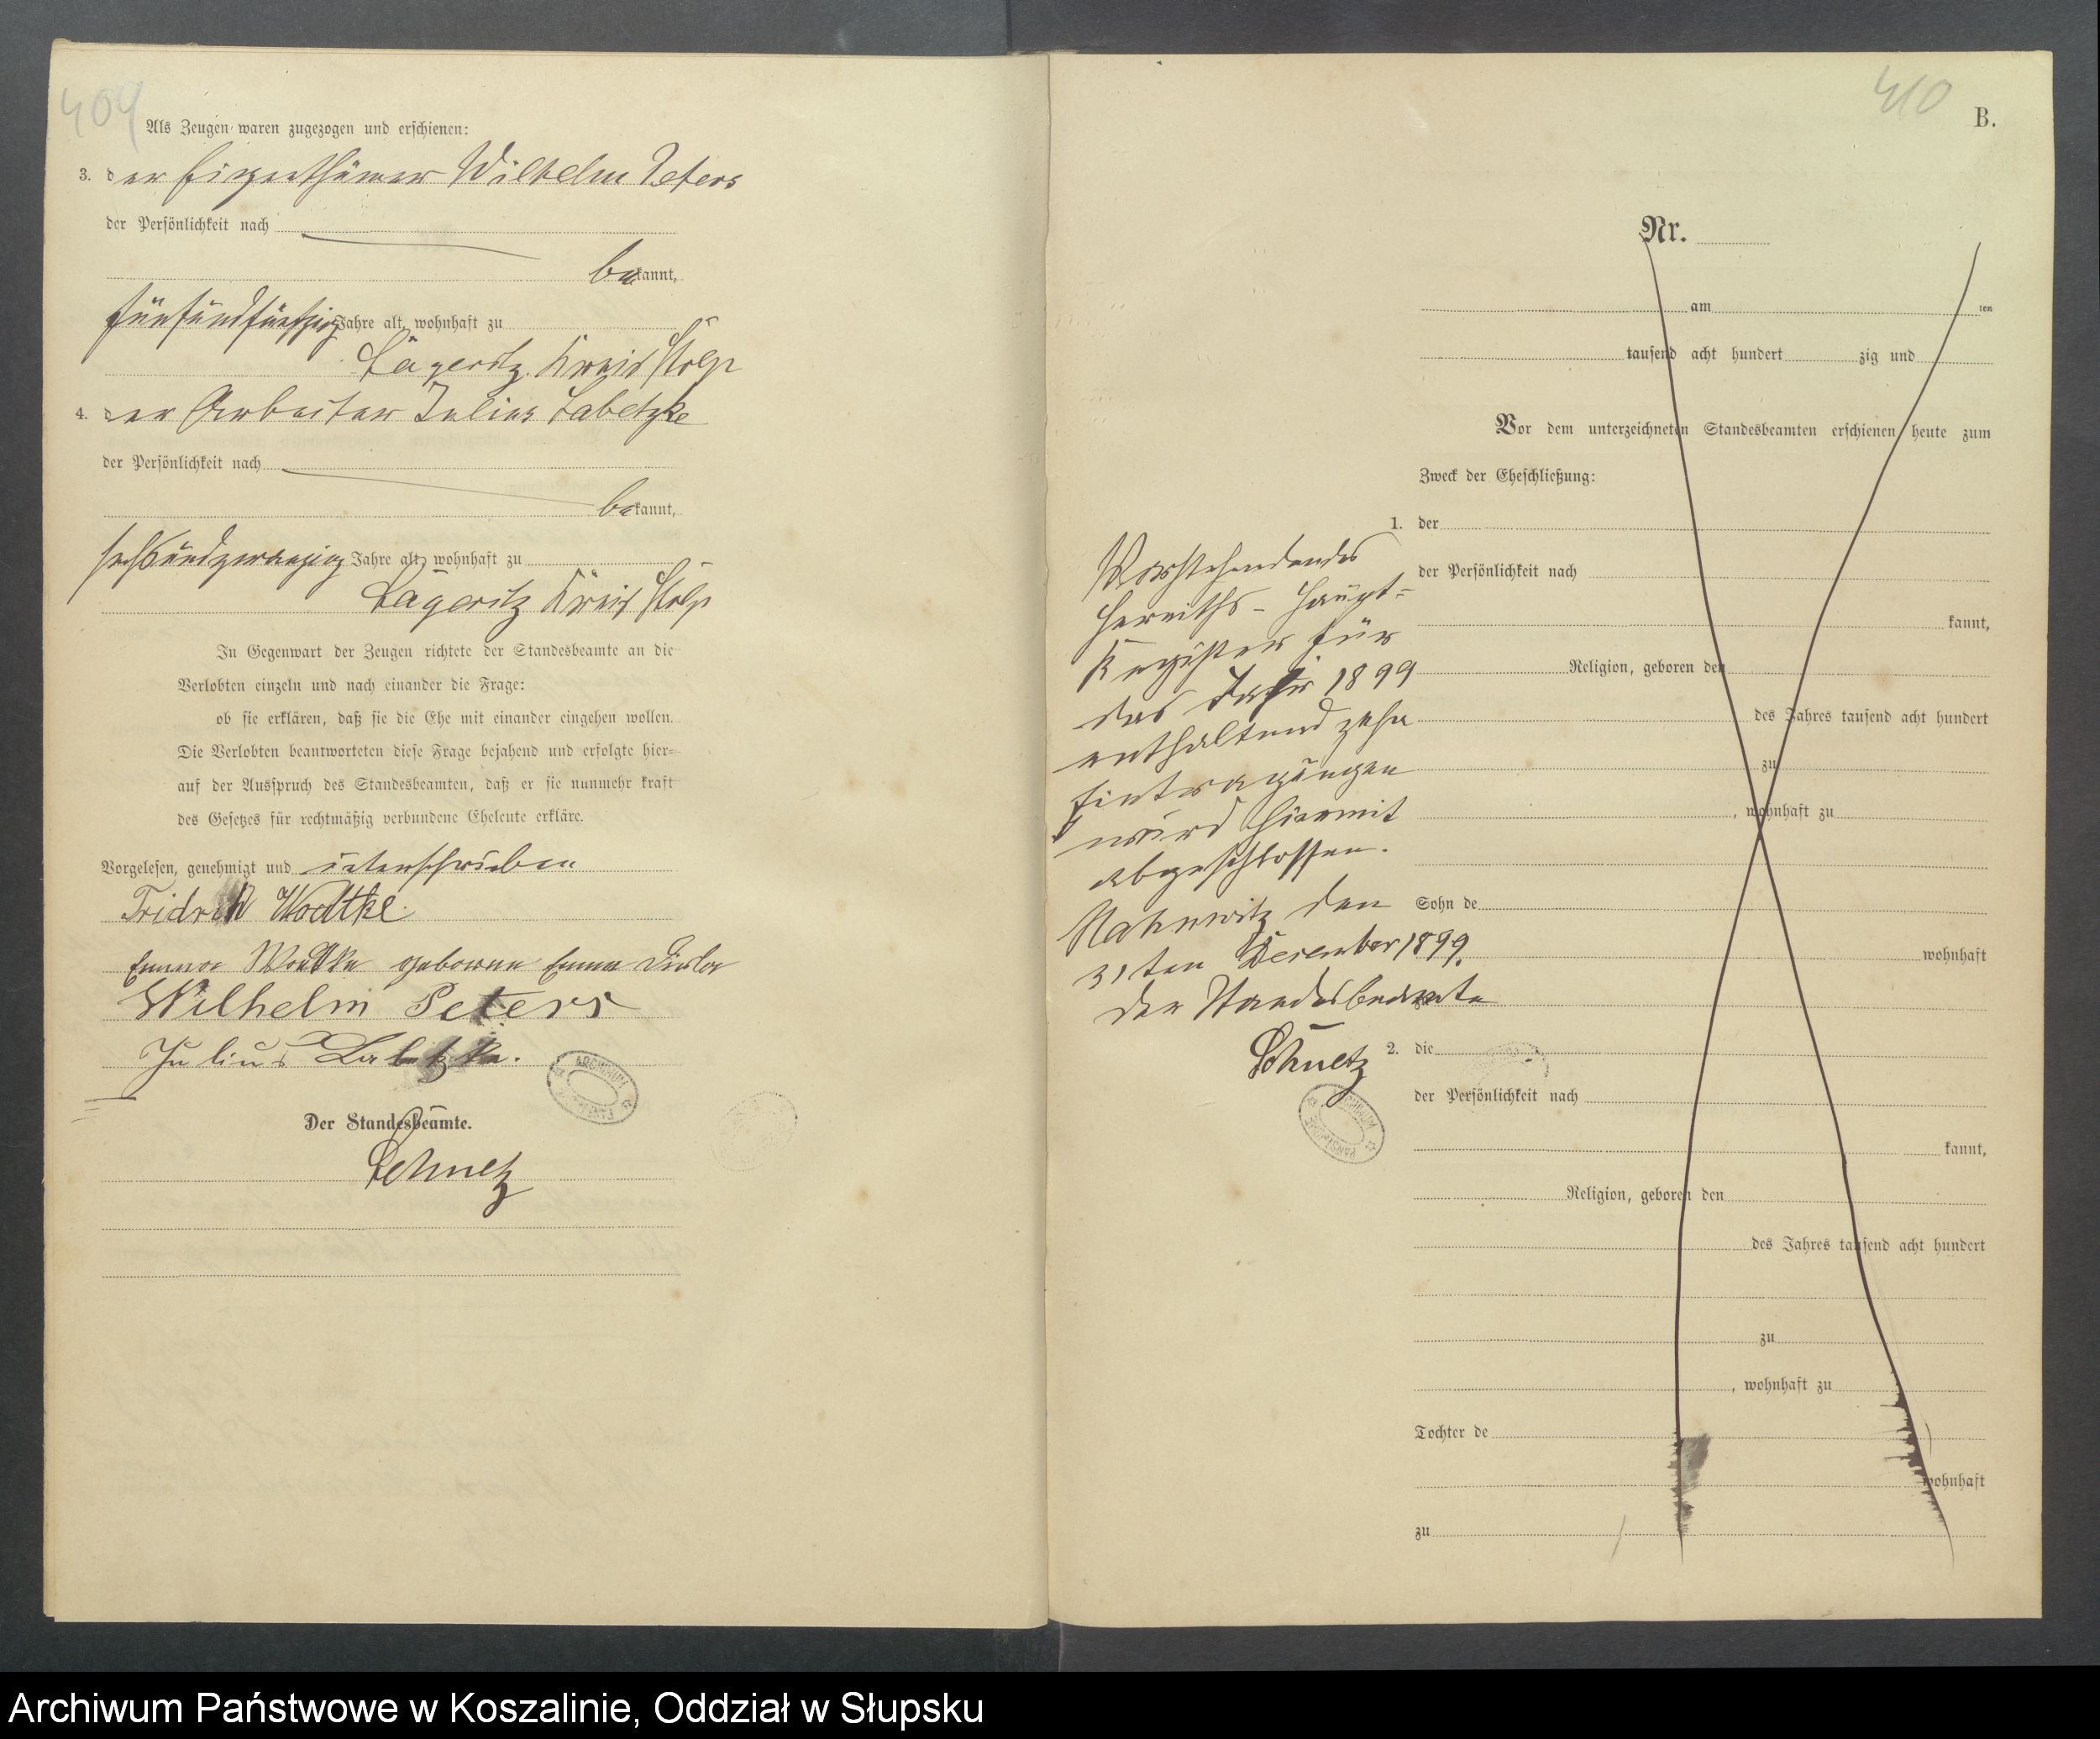 409
Als Zeugen waren zugezogen und erschienen:
3. der Eigenthümer Wilhelm Peters
der Persönlichkeit nach
bekannt,
fünfundfünfzig Jahre alt, wohnhaft zu
Lageritz Kreis Stolp
4. der Arbeiter Julius Labetzke
der Persönlichkeit nach
bekannt,
sechsundzwanzig Jahre alt, wohnhaft zu
Lageritz Kreis Stolp
In Gegenwart der Zeugen richtete der Standesbeamte an die
Verlobten einzeln und nach einander die Frage:
ob sie erklären, daß sie die Ehe mit einander eingehen wollen.
Die Verlobten beantworteten diese Frage bejahend und erfolgte hier=
auf der Ausspruch des Standesbeamten, daß er sie nunmehr kraft
des Gesetzes für rechtmäßig verbundene Eheleute erkläre.
Vorgelesen, genehmigt und unterschrieben
Fridrich Wodtke
Emma Wodtke geborene Emma
Wilhelm Peters
Julius Labetzke.
Der Standesbeamte.
410
B.
Nr.
am ten
tausend acht hundert zig und
Vor dem unterzeichneten Standesbeamten erschienen heute zum
Zweck der Eheschließung:
1. der
der Persönlichkeit nach
kannt,
Religion, geboren den
des Jahres tausend acht hundert
zu
, wohnhaft zu
Sohn de
wohnhaft
2. die
der Persönlichkeit nach
kannt,
Religion, geboren den
des Jahres tausend acht hundert
zu
, wohnhaft zu
Tochter de
wohnhaft
zu
Vorstehendes
Heiraths-Haupt-
Register für
das Jahr 1899
enthaltend zehn
Eintragungen
wird hiermit
abgeschlossen.
den
31ten Dezember 1899.
Der Standesbeamte
Archiwum Państwowe w Koszalinie, Oddział w Słupsku